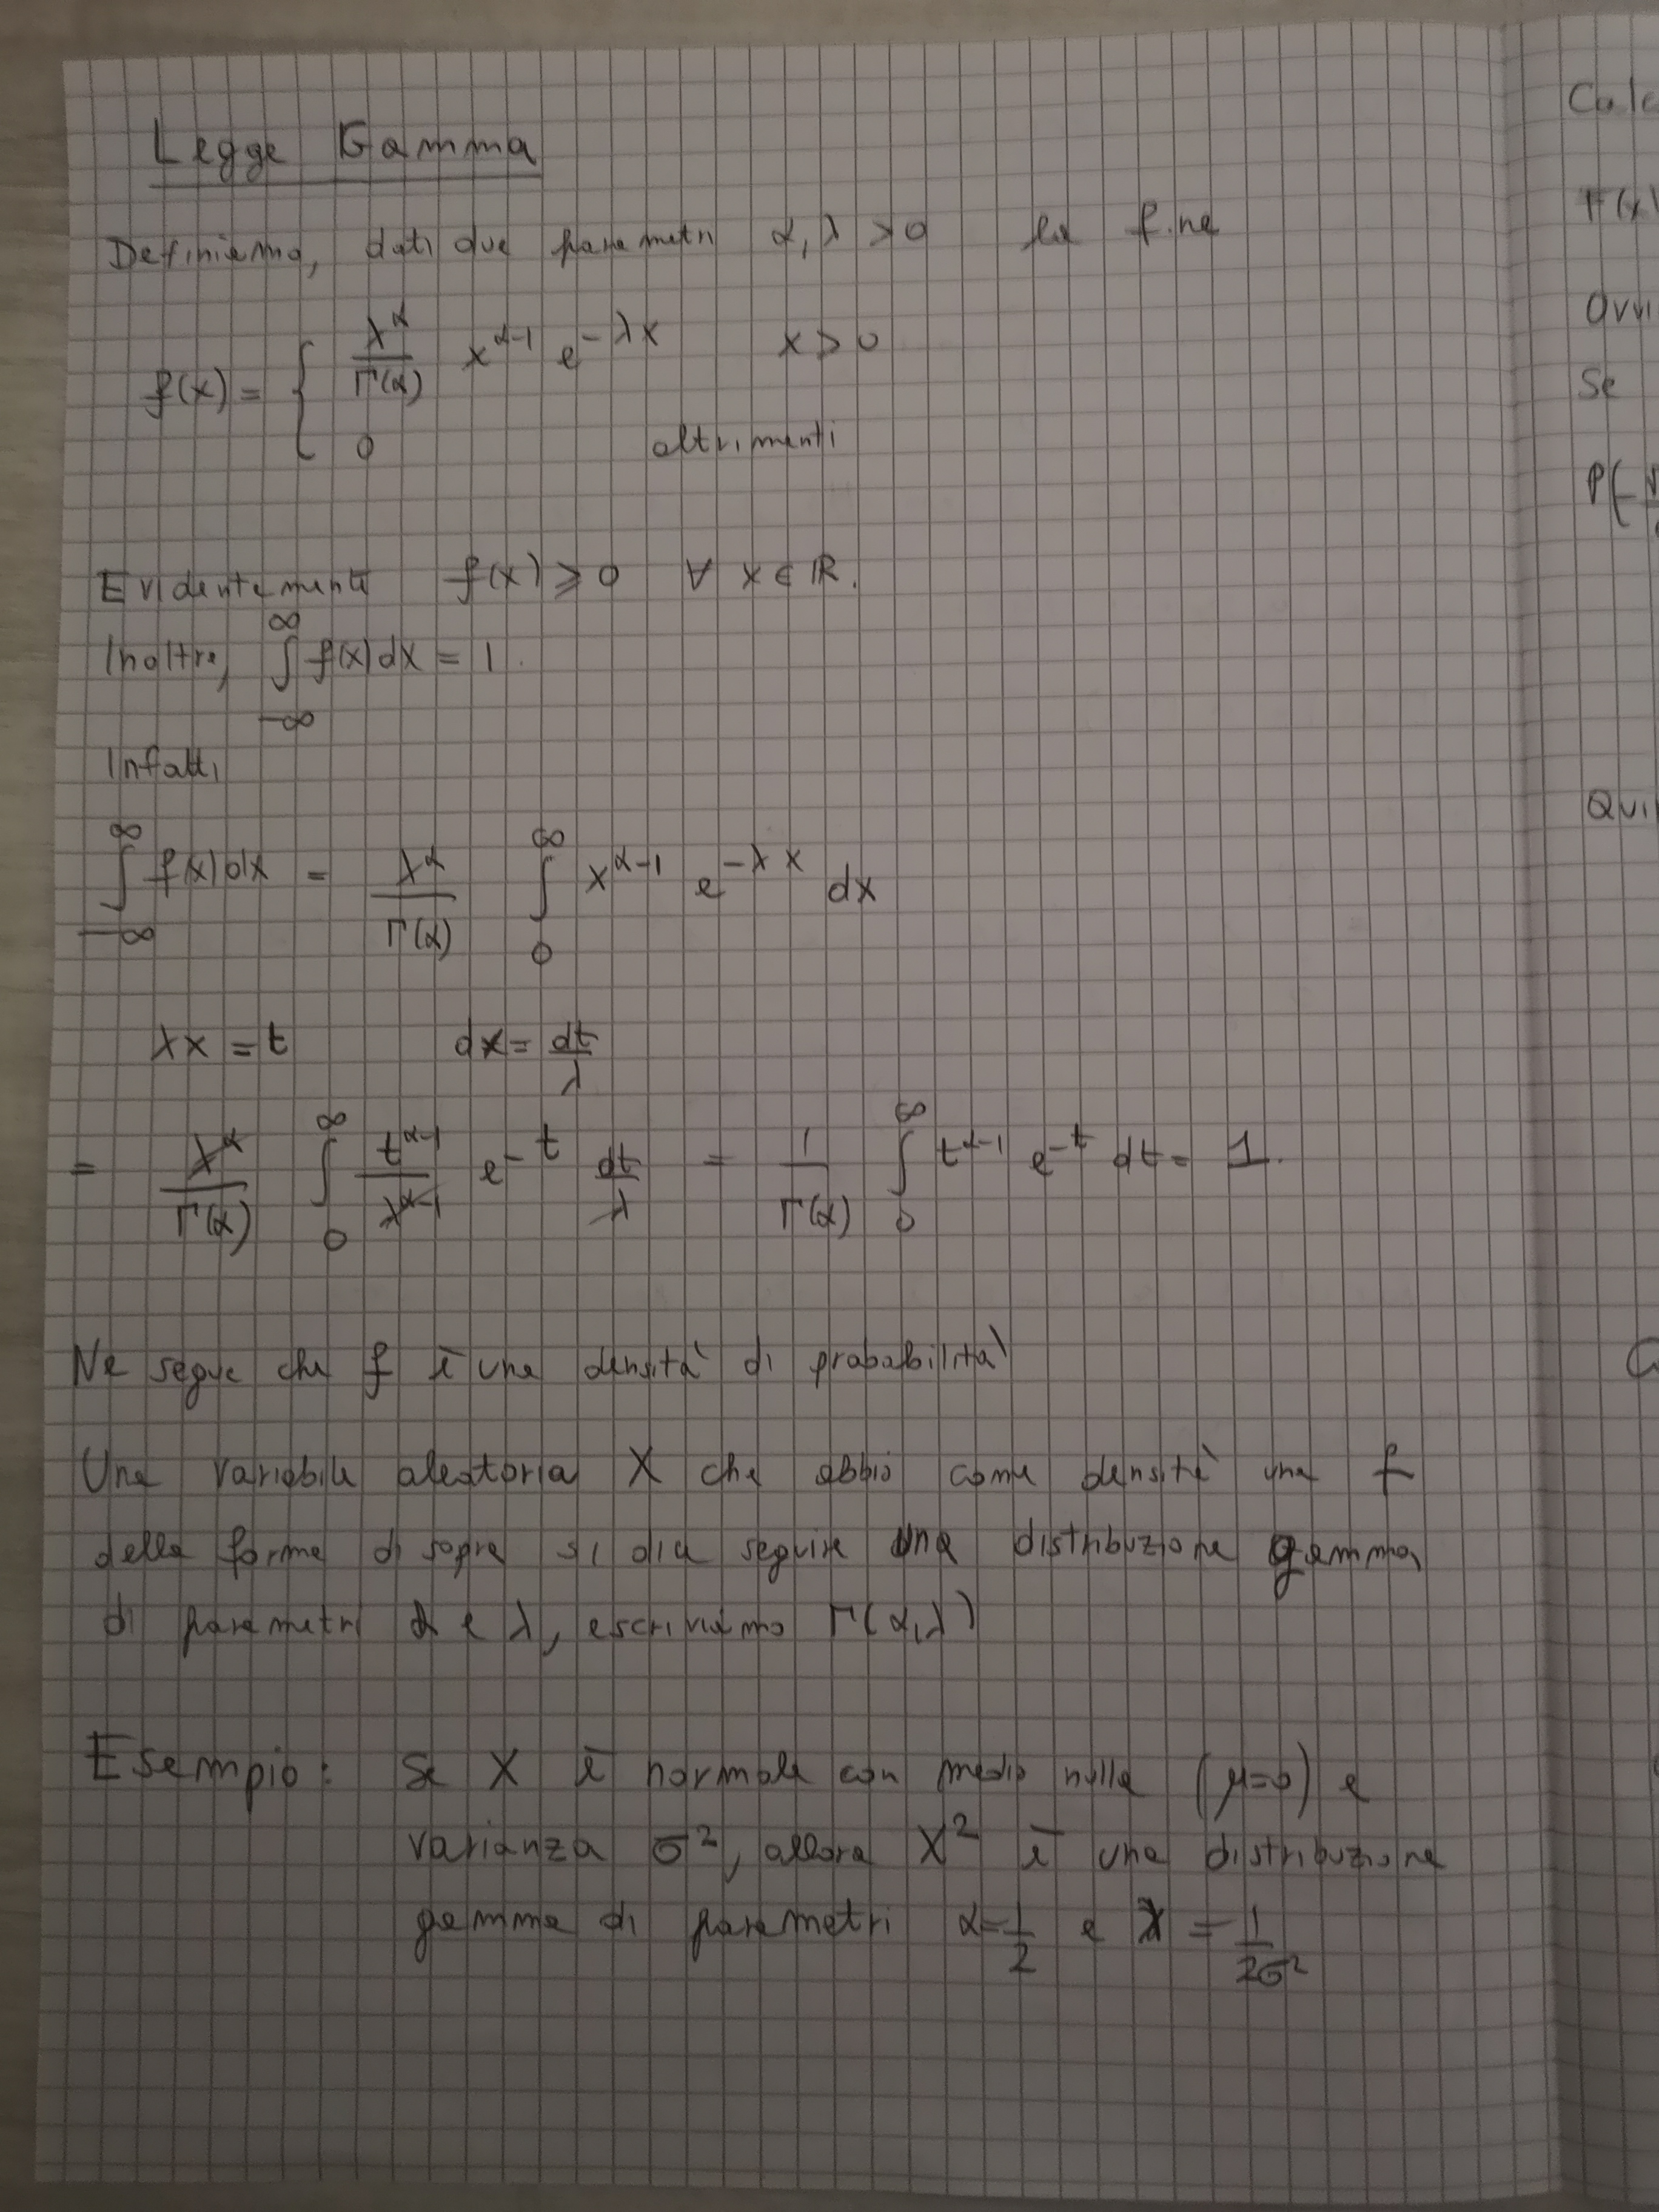 Legge Gamma
Definiamo, dati due parametri α, λ > 0 la f.ne
f(x) = { λ^α / Γ(α) x^(α-1) e^(-λx) x > 0
0 altrimenti
Evidentemente f(x) ≥ 0 ∀ x ∈ ℝ.
Inoltre, ∫_{-∞}^{∞} f(x) dx = 1.
Infatti
∫_{-∞}^{∞} f(x) dx = λ^α / Γ(α) ∫_0^∞ x^(α-1) e^(-λx) dx
λx = t dx = dt/λ
= λ^α / Γ(α) ∫_0^∞ t^(α-1) / λ^(α-1) e^(-t) dt/λ = 1/Γ(α) ∫_0^∞ t^(α-1) e^(-t) dt = 1.
Ne segue che f è una densità di probabilità
Una variabile aleatoria X che abbia come densità una f
della forma di sopra si dice seguire una distribuzione gamma
di parametri α e λ, e scriviamo Γ(α,λ)
Esempio: Se X è normale con media nulla (μ=0) e
varianza σ², allora X² è una distribuzione
gamma di parametri α=1/2 e λ = 1/2σ²
Calc
F(x)
Ovvi
Se
P(-
Qui